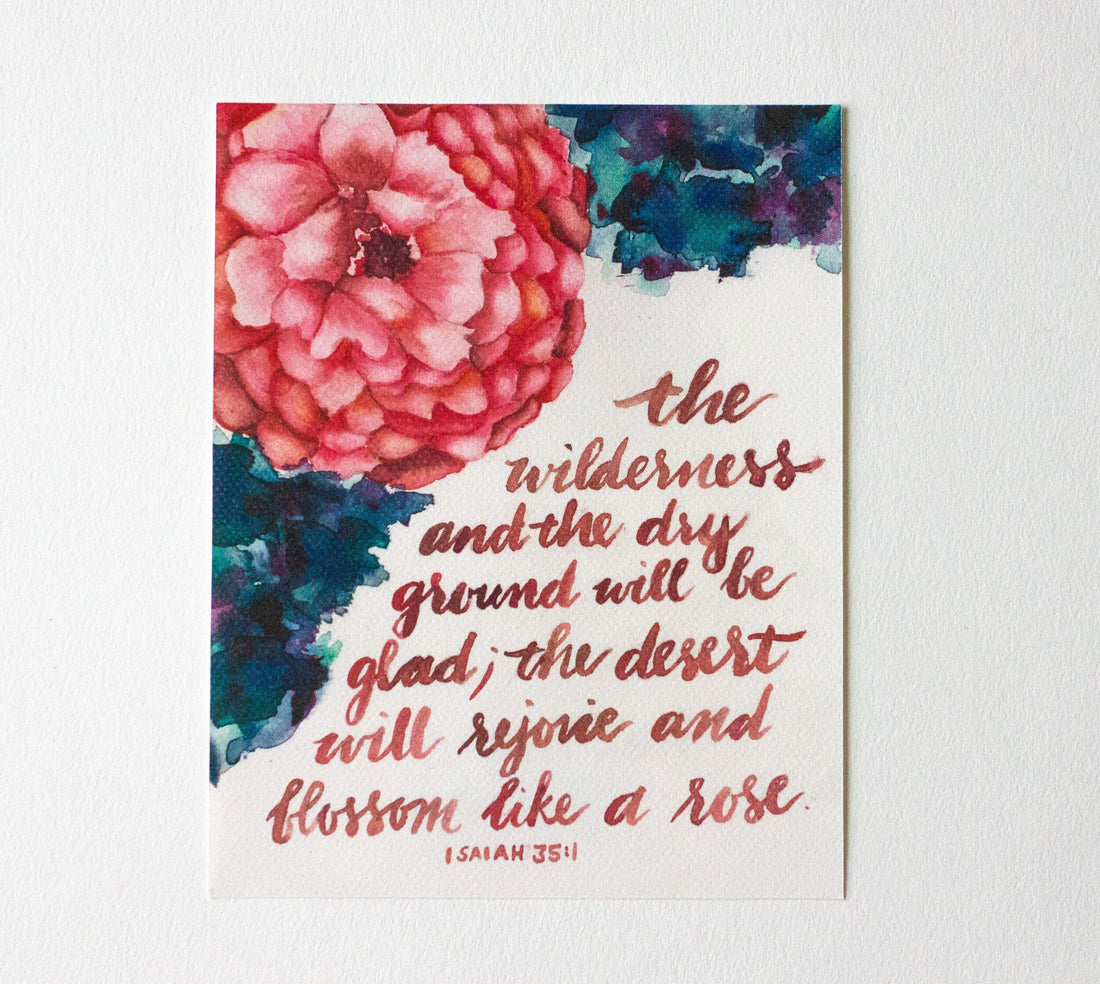 the
wilderness
and the dry
ground will be
glad; the desert
will rejoice and
blossom like a rose.
ISAIAH 35:1